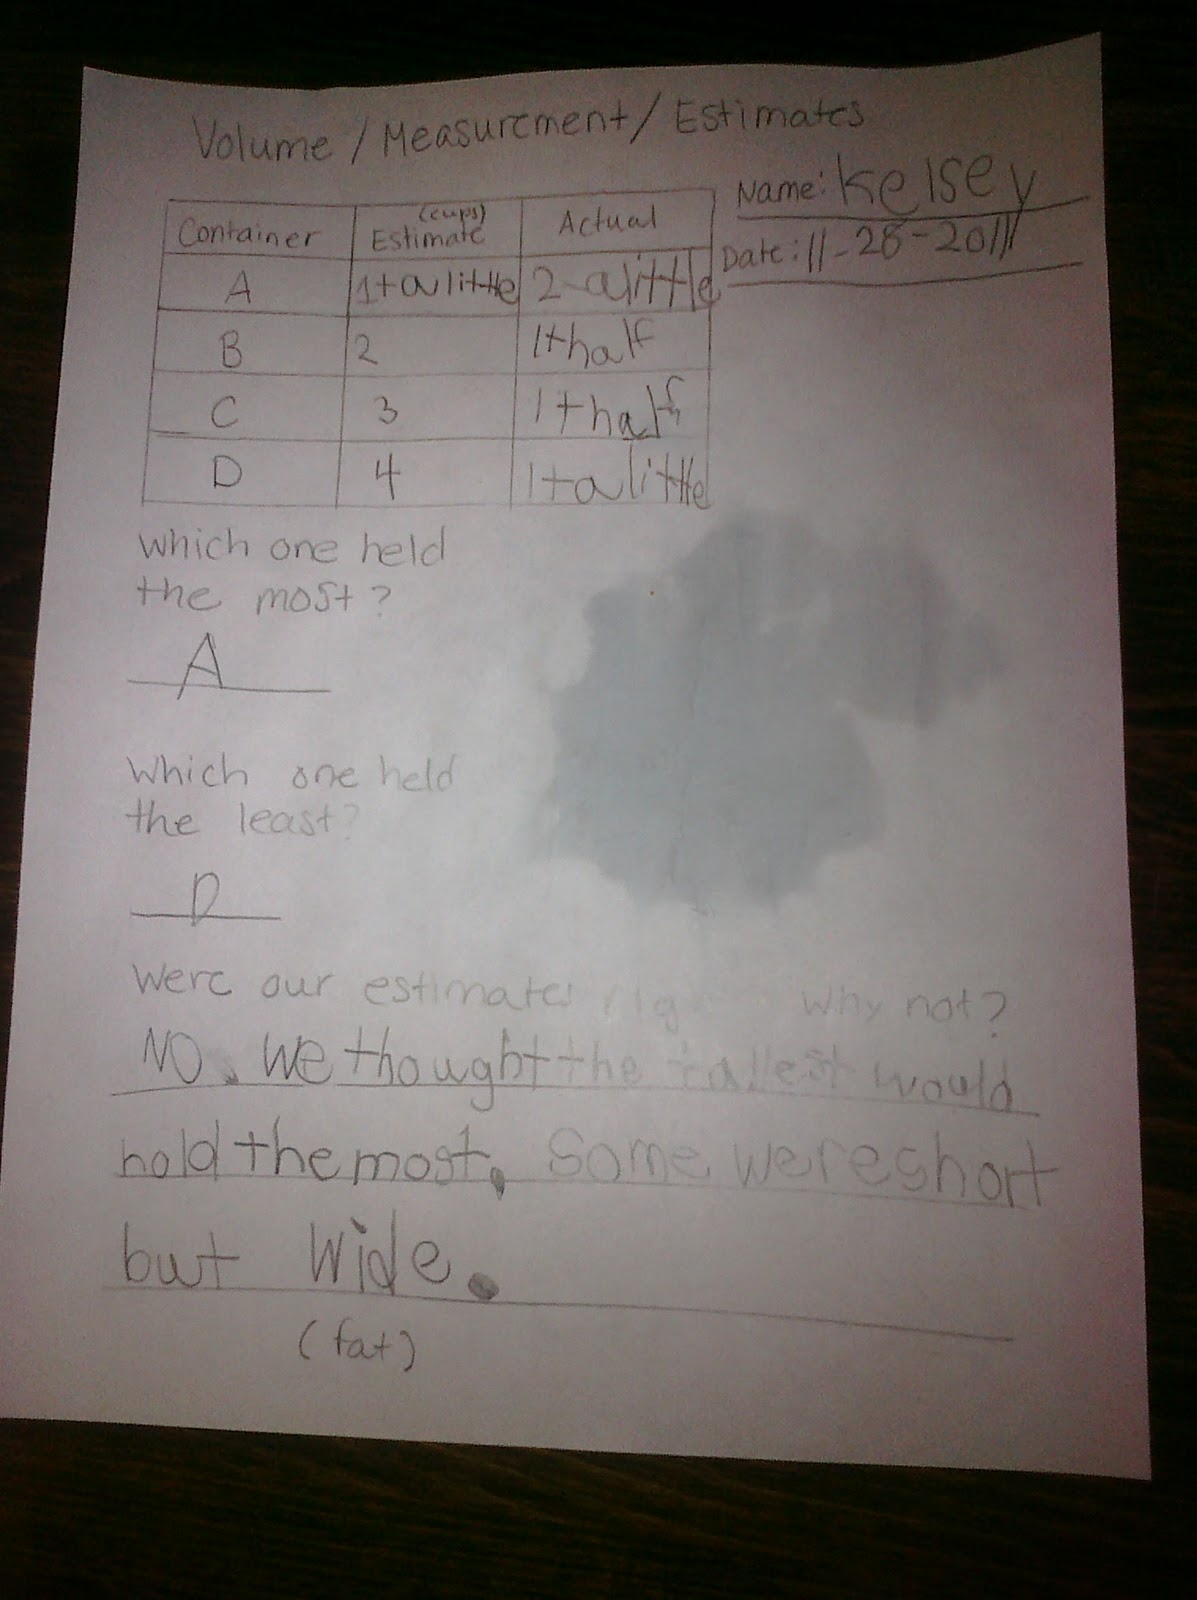 Volume / Measurement / Estimates
Name: Kelsey
Date: 11-28-2011
Container (cups) Estimate Actual
A 1+a little 2-a little
B 2 1+half
C 3 1+half
D 4 1+a little
Which one held
the most?
A
Which one held
the least?
D
Were our estimates Why not?
NO. We thought the tallest would
hold the most. Some were short
but wide.
(fat)